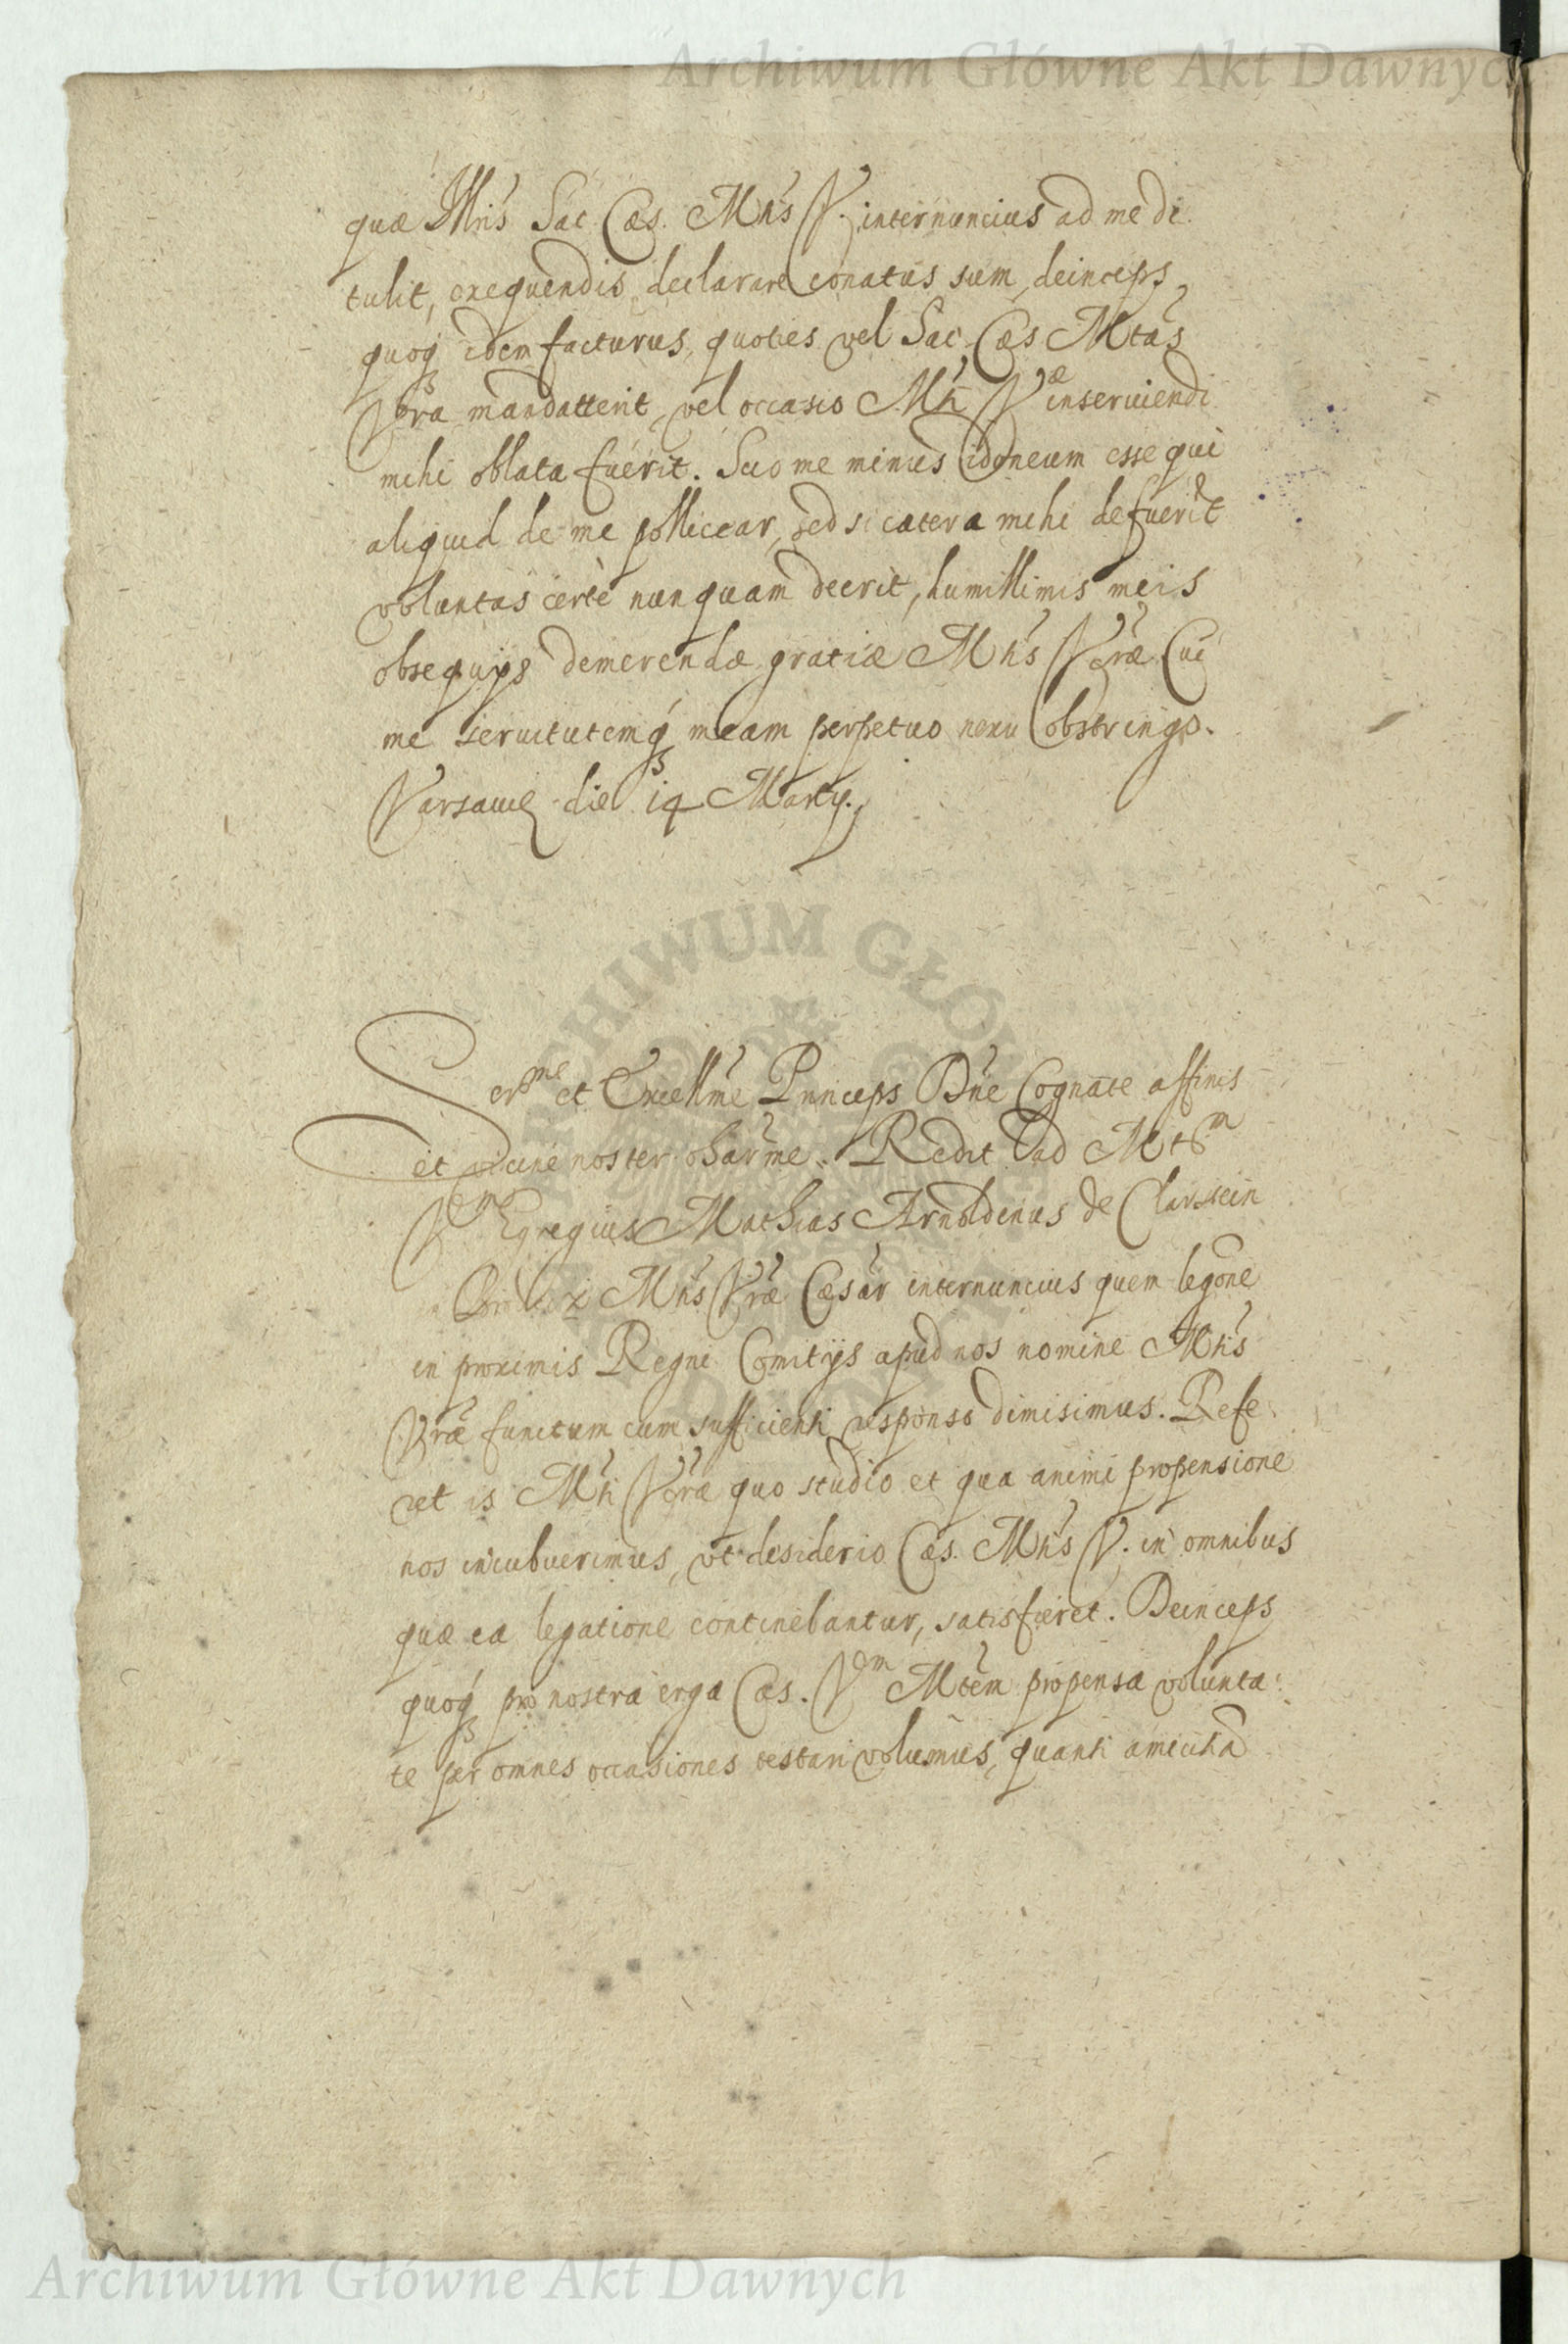 Archiwum Główne Akt Dawnych
quæ Illris Sac. Cæs. Mtis V. internuncius ad me de
tulit, exequendis declarare conatus sum, deinceps
quoq idem facturus, quoties vel Sac. Cæs Mtas
Vra mandatterit, vel occasio Mti Væ inseruiendi
mihi oblata fuerit. Scio me minus idoneum esse qui
aliquid de me pollicear, sed si cætera mihi defuerit
voluntas certè nunquam deerit, humillimis meis
obsequijs demerendæ gratiæ Mtis Vræ Cui
me seruitutemq meam perpetuo nexu obstringo.
Varsauię die 14 Martij.
ARCHIWUM GŁÓWNE AKT DAWNYCH
Serme et Excellme Princeps Dne Cognate affinis
et vicine noster charme. Redit ad Mtem
Vem Egregius Mathias Arnoldinus de Clarstein
Mtis Vræ Cæsar internuncius quem legone
in proximis Regni Comitijs apud nos nomine Mtis
Vræ functum cum sufficienti responso dimisimus. Refe
ret is Mti Vræ quo studio et qua animi propensione
nos incubuerimus, vt desiderio Cæs. Mtis V. in omnibus
quæ ea legatione continebantur, satisfieret. Deinceps
quoq pro nostra erga Cæs. Vem Mtem propensa volunta
te per omnes occasiones testari volumus, quanti amicitia
Archiwum Główne Akt Dawnych